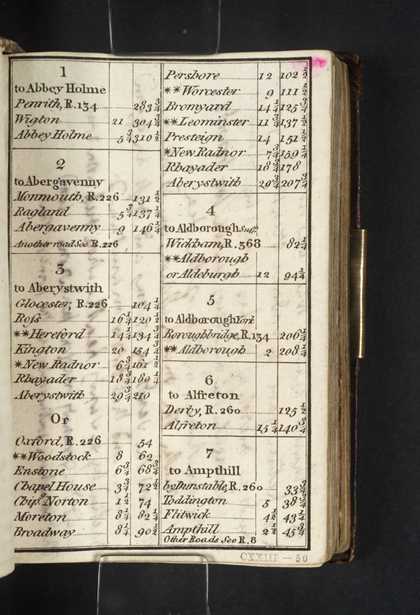 1
to Abbey Holme
Penrith, R.134 283 3/4
Wigton 21 304 3/4
Abbey Holme 5 3/4 310 1/2
2
to Abergavenny
Monmouth, R.226 131 1/2
Ragland 5 3/4 137 1/4
Abergavenny 9 146 1/4
Another road See R.226
3
to Aberystwith
Glocester, R.226 104 1/4
Ross 16 1/4 120 1/2
**Hereford 14 1/4 134 3/4
Kington 20 154 3/4
*New Radnor 6 3/4 161 1/2
Rhayader 18 3/4 180 1/4
Aberystwith 29 3/4 210
Or
Oxford, R.226 54
**Woodstock 8 62
Enstone 6 3/4 68 3/4
Chapel House 3 3/4 72 1/2
Chips. Norton 1 1/2 74
Moreton 8 1/4 82 1/4
Broadway 8 1/4 90 1/2
Pershore 12 102 1/2
**Worcester 9 111 1/2
Bromyard 14 1/4 125 3/4
**Leominster 11 3/4 137 1/2
Presteign 14 151 1/2
*New Radnor 7 3/4 159 1/4
Rhayader 18 3/4 178
Aberystwith 29 3/4 207 3/4
4
to Aldborough Suff.
Wickham, R.368 82 1/4
**Aldborough
or Aldeburgh 12 94 1/4
5
to Aldborough York
Boroughbridge, R.134 206 1/4
**Aldborough 2 208 1/4
6
to Alfreton
Derby, R.260 125 1/2
Alfreton 15 1/4 140 3/4
7
to Ampthill
by Dunstable, R.260 33 3/4
Toddington 5 38 3/4
Flitwick 4 1/2 43 1/4
Ampthill 2 1/2 45 3/4
Other Roads See R.8
CXXIII — 50